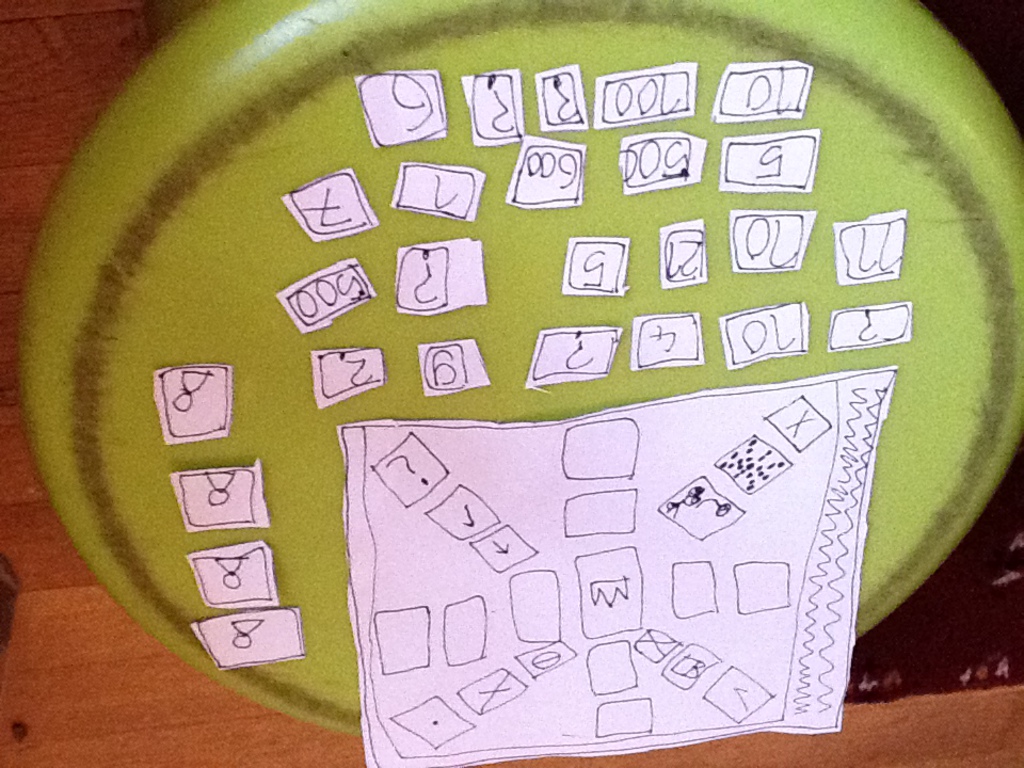 ? 10 4 ? 9 2
11 10 21 5 ? 500
5 500 600 1 7
10 100 ? ? 6